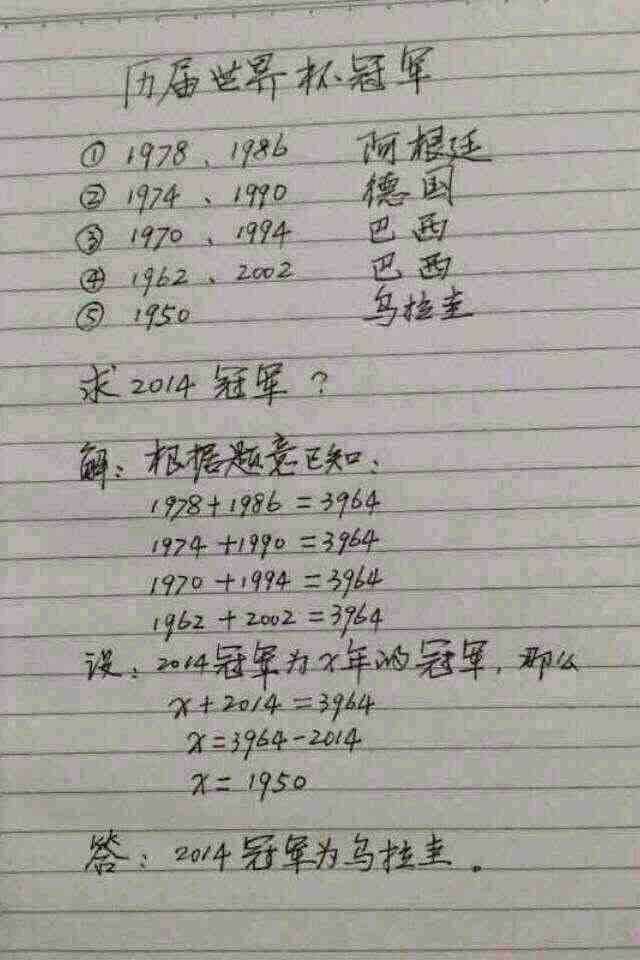 历届世界杯冠军
① 1978、1986 阿根廷
② 1974、1990 德国
③ 1970、1994 巴西
④ 1962、2002 巴西
⑤ 1950 乌拉圭
求2014冠军?
解:根据题意已知:
1978+1986=3964
1974+1990=3964
1970+1994=3964
1962+2002=3964
设:2014冠军为x年的冠军,那么
x+2014=3964
x=3964-2014
x=1950
答:2014冠军为乌拉圭。